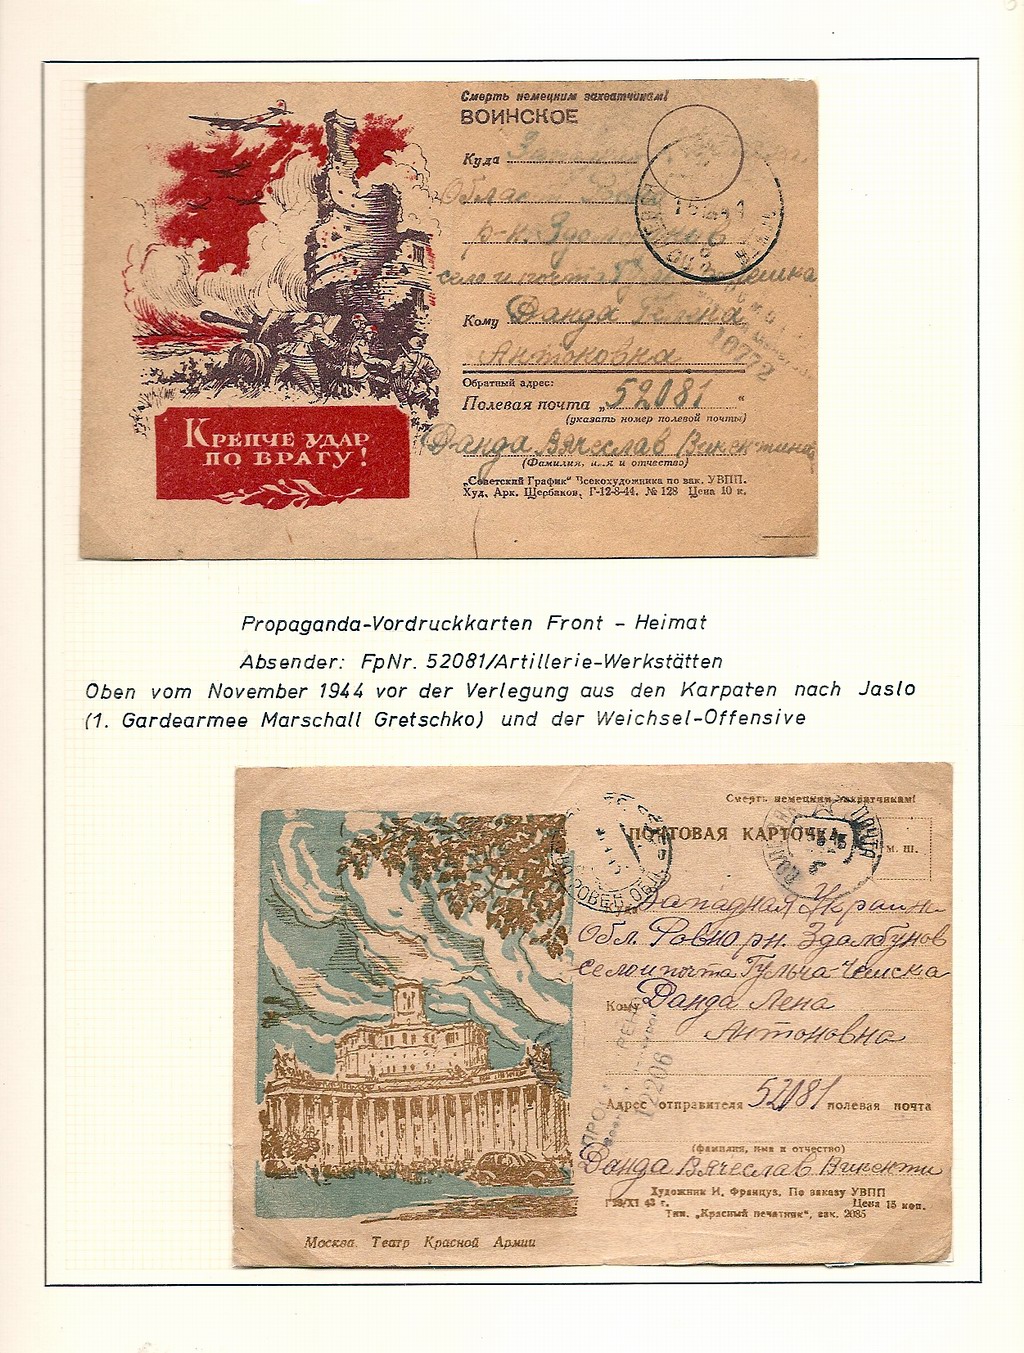 Смерть немецким захватчикам!
ВОИНСКОЕ
Куда
Област
р-н. Здолбунов
село и почта
Кому Данда Гелена
Антоновна
Обратный адрес:
Полевая почта „52081“
(указать номер полевой почты)
Данда Вячеслав Викентиев
(Фамилия, имя и отчество)
„Советский График“ Всекохудожника по зак. УВПП.
Худ. Арк. Щербаков. Г-12-8-44. № 128 Цена 10 к.
10772
КРЕПЧЕ УДАР
ПО ВРАГУ!
Propaganda-Vordruckkarten Front - Heimat
Absender: FpNr. 52081/Artillerie-Werkstätten
Oben vom November 1944 vor der Verlegung aus den Karpaten nach Jaslo
(1. Gardearmee Marschall Gretschko) und der Weichsel-Offensive
Смерть немецким захватчикам!
ПОЧТОВАЯ КАРТОЧКА
м. ш.
ПОЧТА
Западная Украина
Обл. Ровно рн. Здалбунов
село и почта Гульча-Чешска
Кому Данда Лена
Антоновна
Адрес отправителя 52081 полевая почта
(фамилия, имя и отчество)
Данда Вячеслав Викенти
Художник И. Француз. По заказу УВПП
Г 28/XI 43 г. Цена 15 коп.
Тип. „Красный печатник“, зак. 2085
Москва. Театр Красной Армии